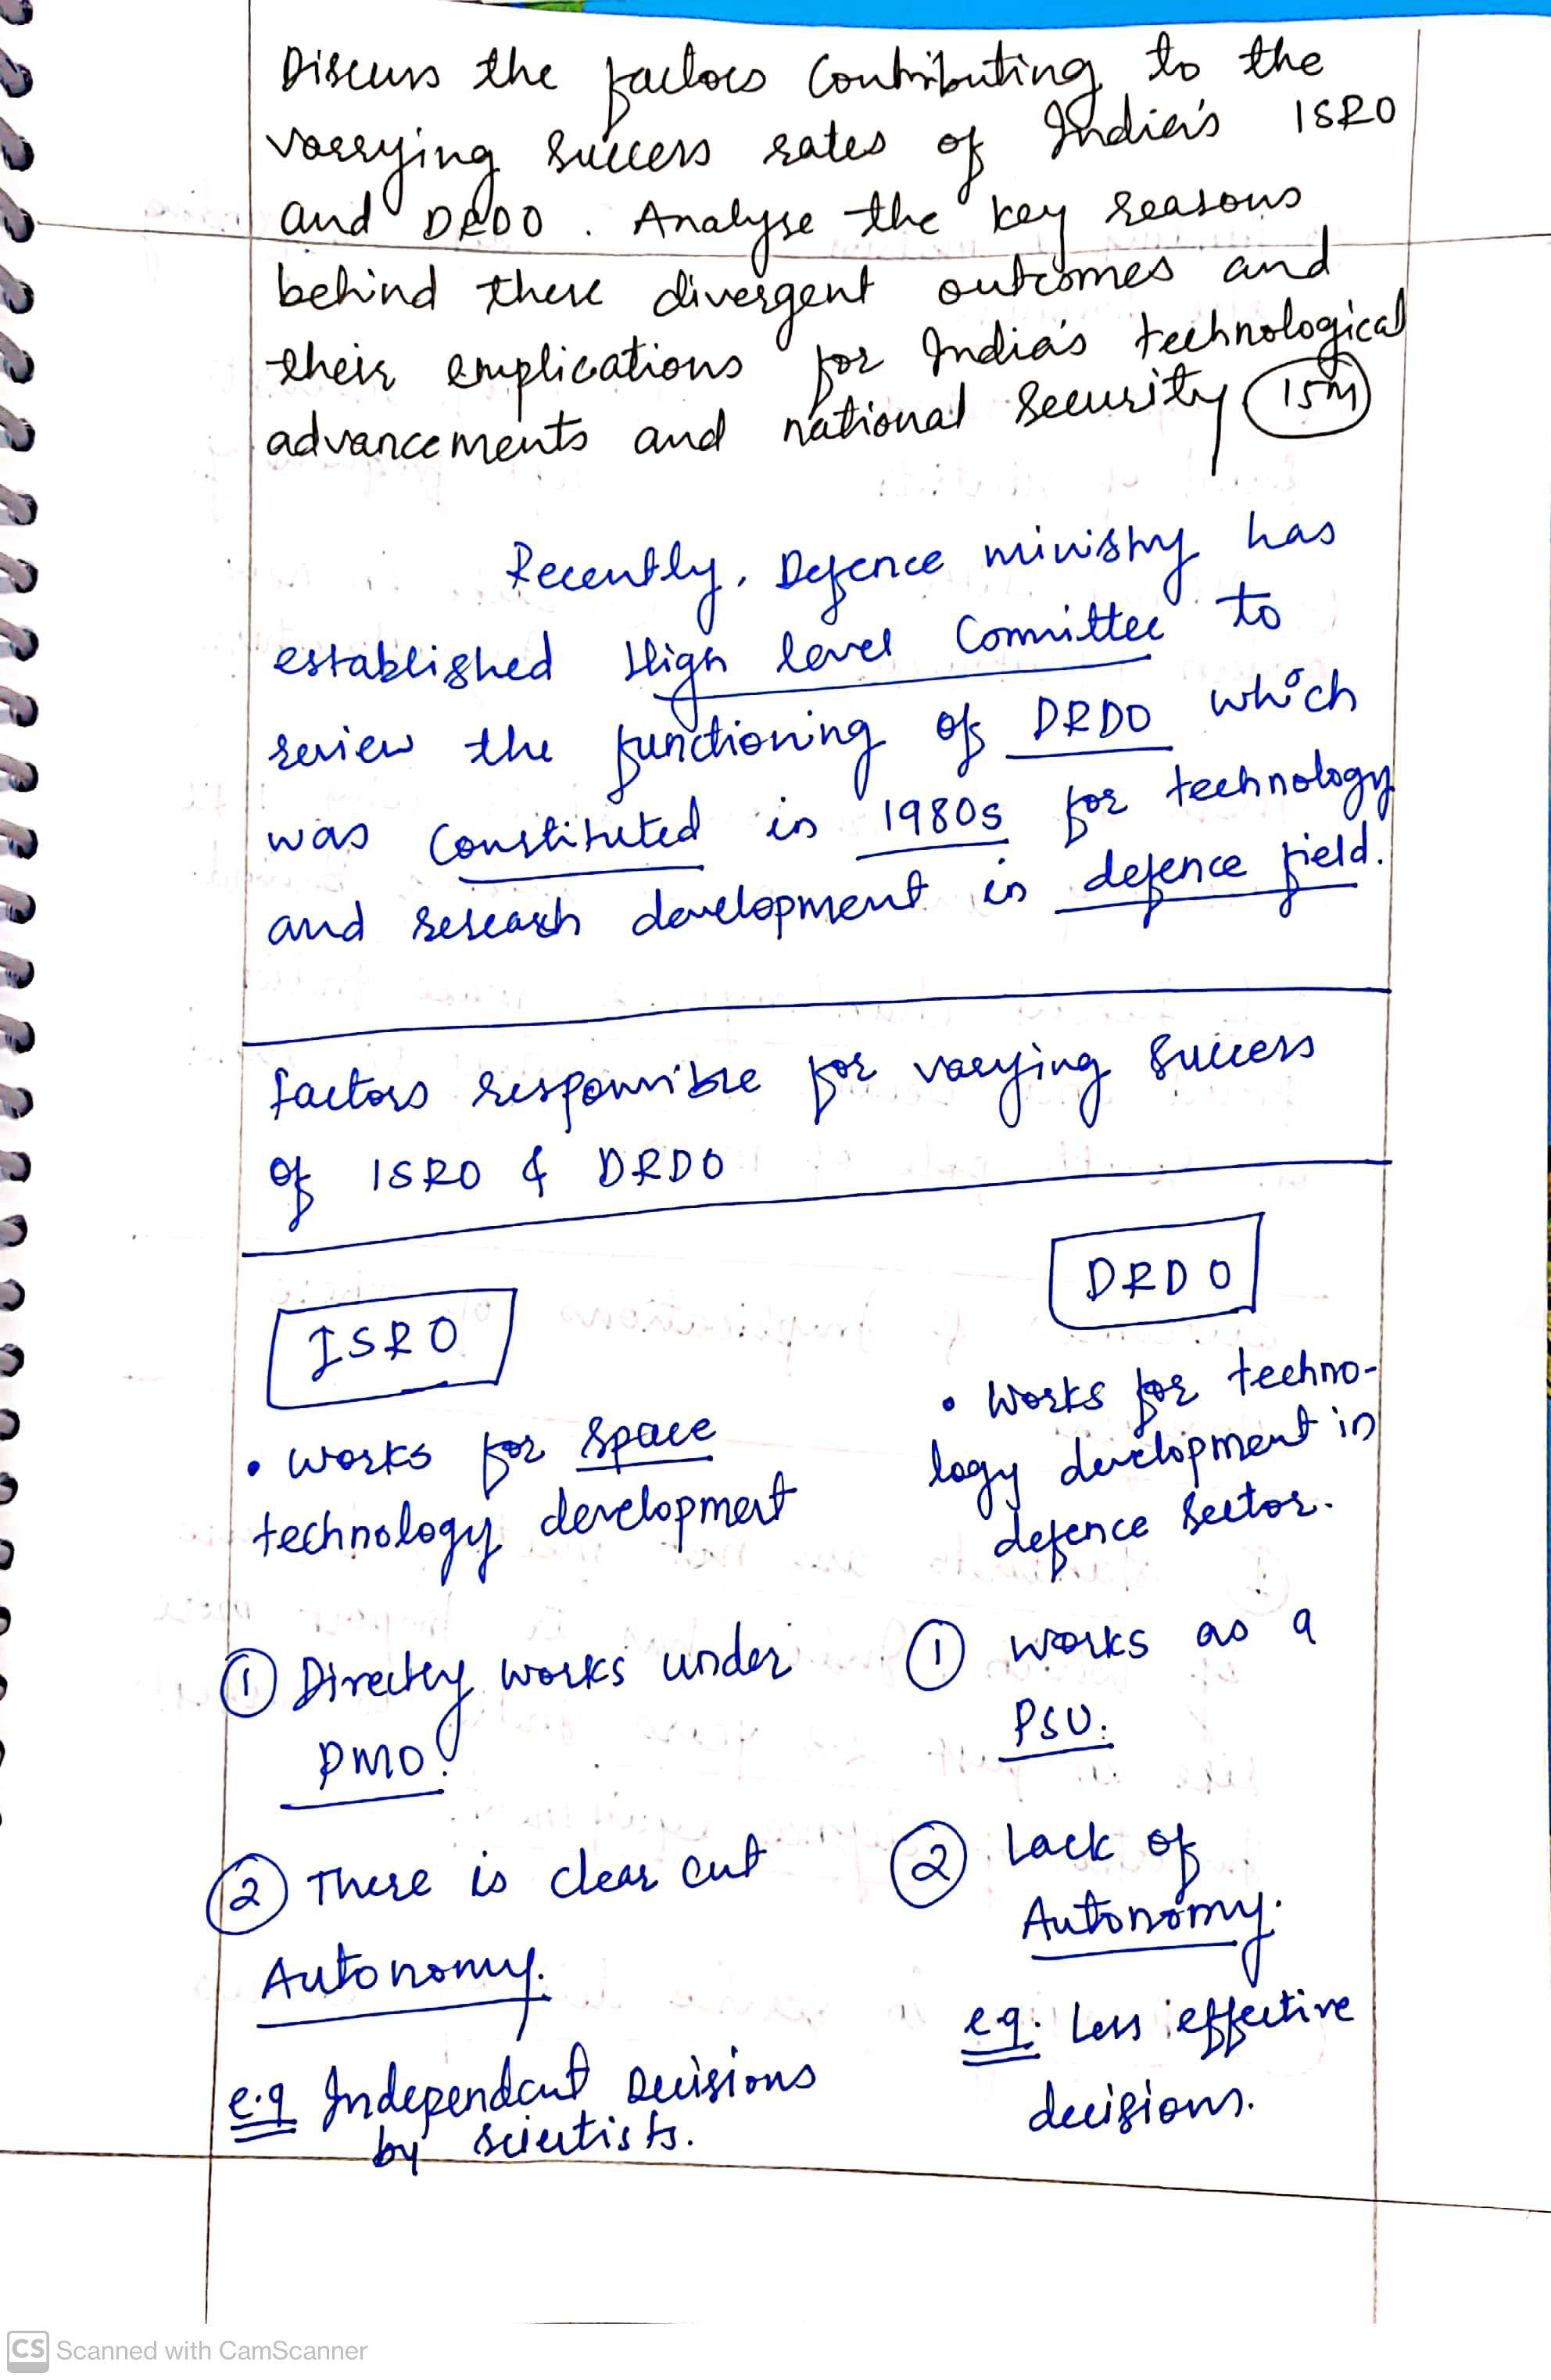 Discuss the factors Contributing to the
varrying success rates of India's ISRO
and DRDO. Analyse the key reasons
behind these divergent outcomes and
their implications for India's technological
advancements and national security 15M
Recently, Defence ministry has
established High level Committee to
review the functioning of DRDO which
was Constituted in 1980s for technology
and research development in defence field.
factors responsible for varying success
of ISRO & DRDO
ISRO
• works for space
technology development
① Directly works under
PMO.
② There is clear cut
Autonomy.
e.g Independent Decisions
by scientists.
DRDO
• Works for techno-
logy development in
defence sector.
① works as a
PSU.
② Lack of
Autonomy.
e.g. Less effective
decisions.
CS Scanned with CamScanner